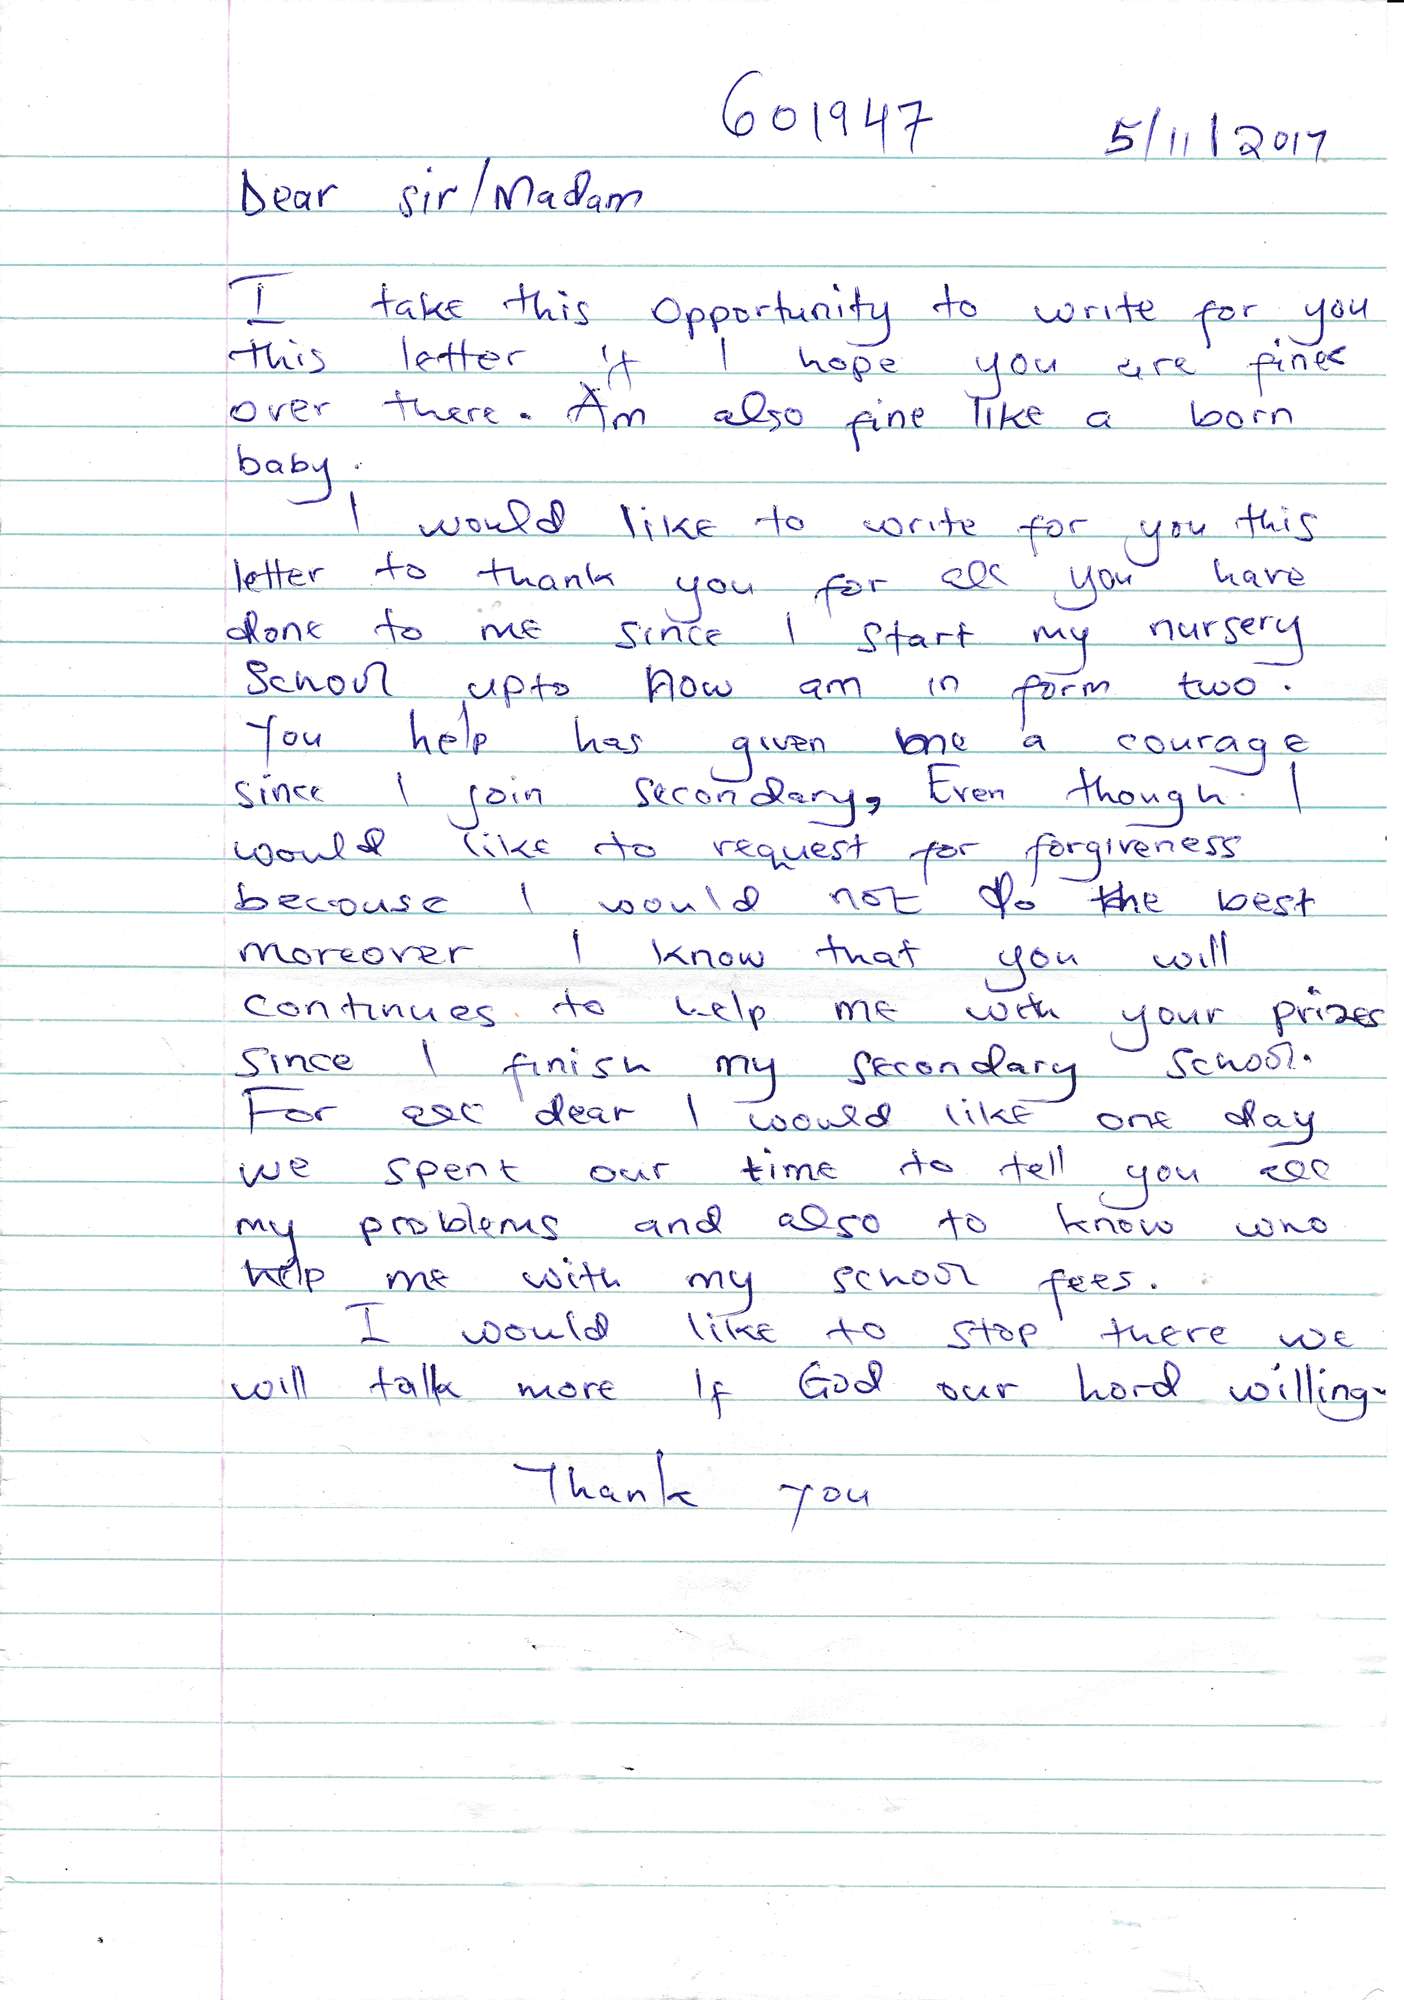 601947
5/11/2017
Dear sir/Madam
I take this opportunity to write for you
this letter if I hope you are fine
over there. Am also fine like a born
baby.
I would like to write for you this
letter to thank you for all you have
done to me since I start my nursery
School upto now am in form two.
You help has given me a courage
since I join secondary, Even though I
would like to request for forgiveness
becouse I would not do the best
moreover I know that you will
continues to help me with your prizes
since I finish my secondary school.
For all dear I would like one day
we spent our time to tell you all
my problems and also to know who
help me with my school fees.
I would like to stop there we
will talk more If God our hord willing.
Thank you